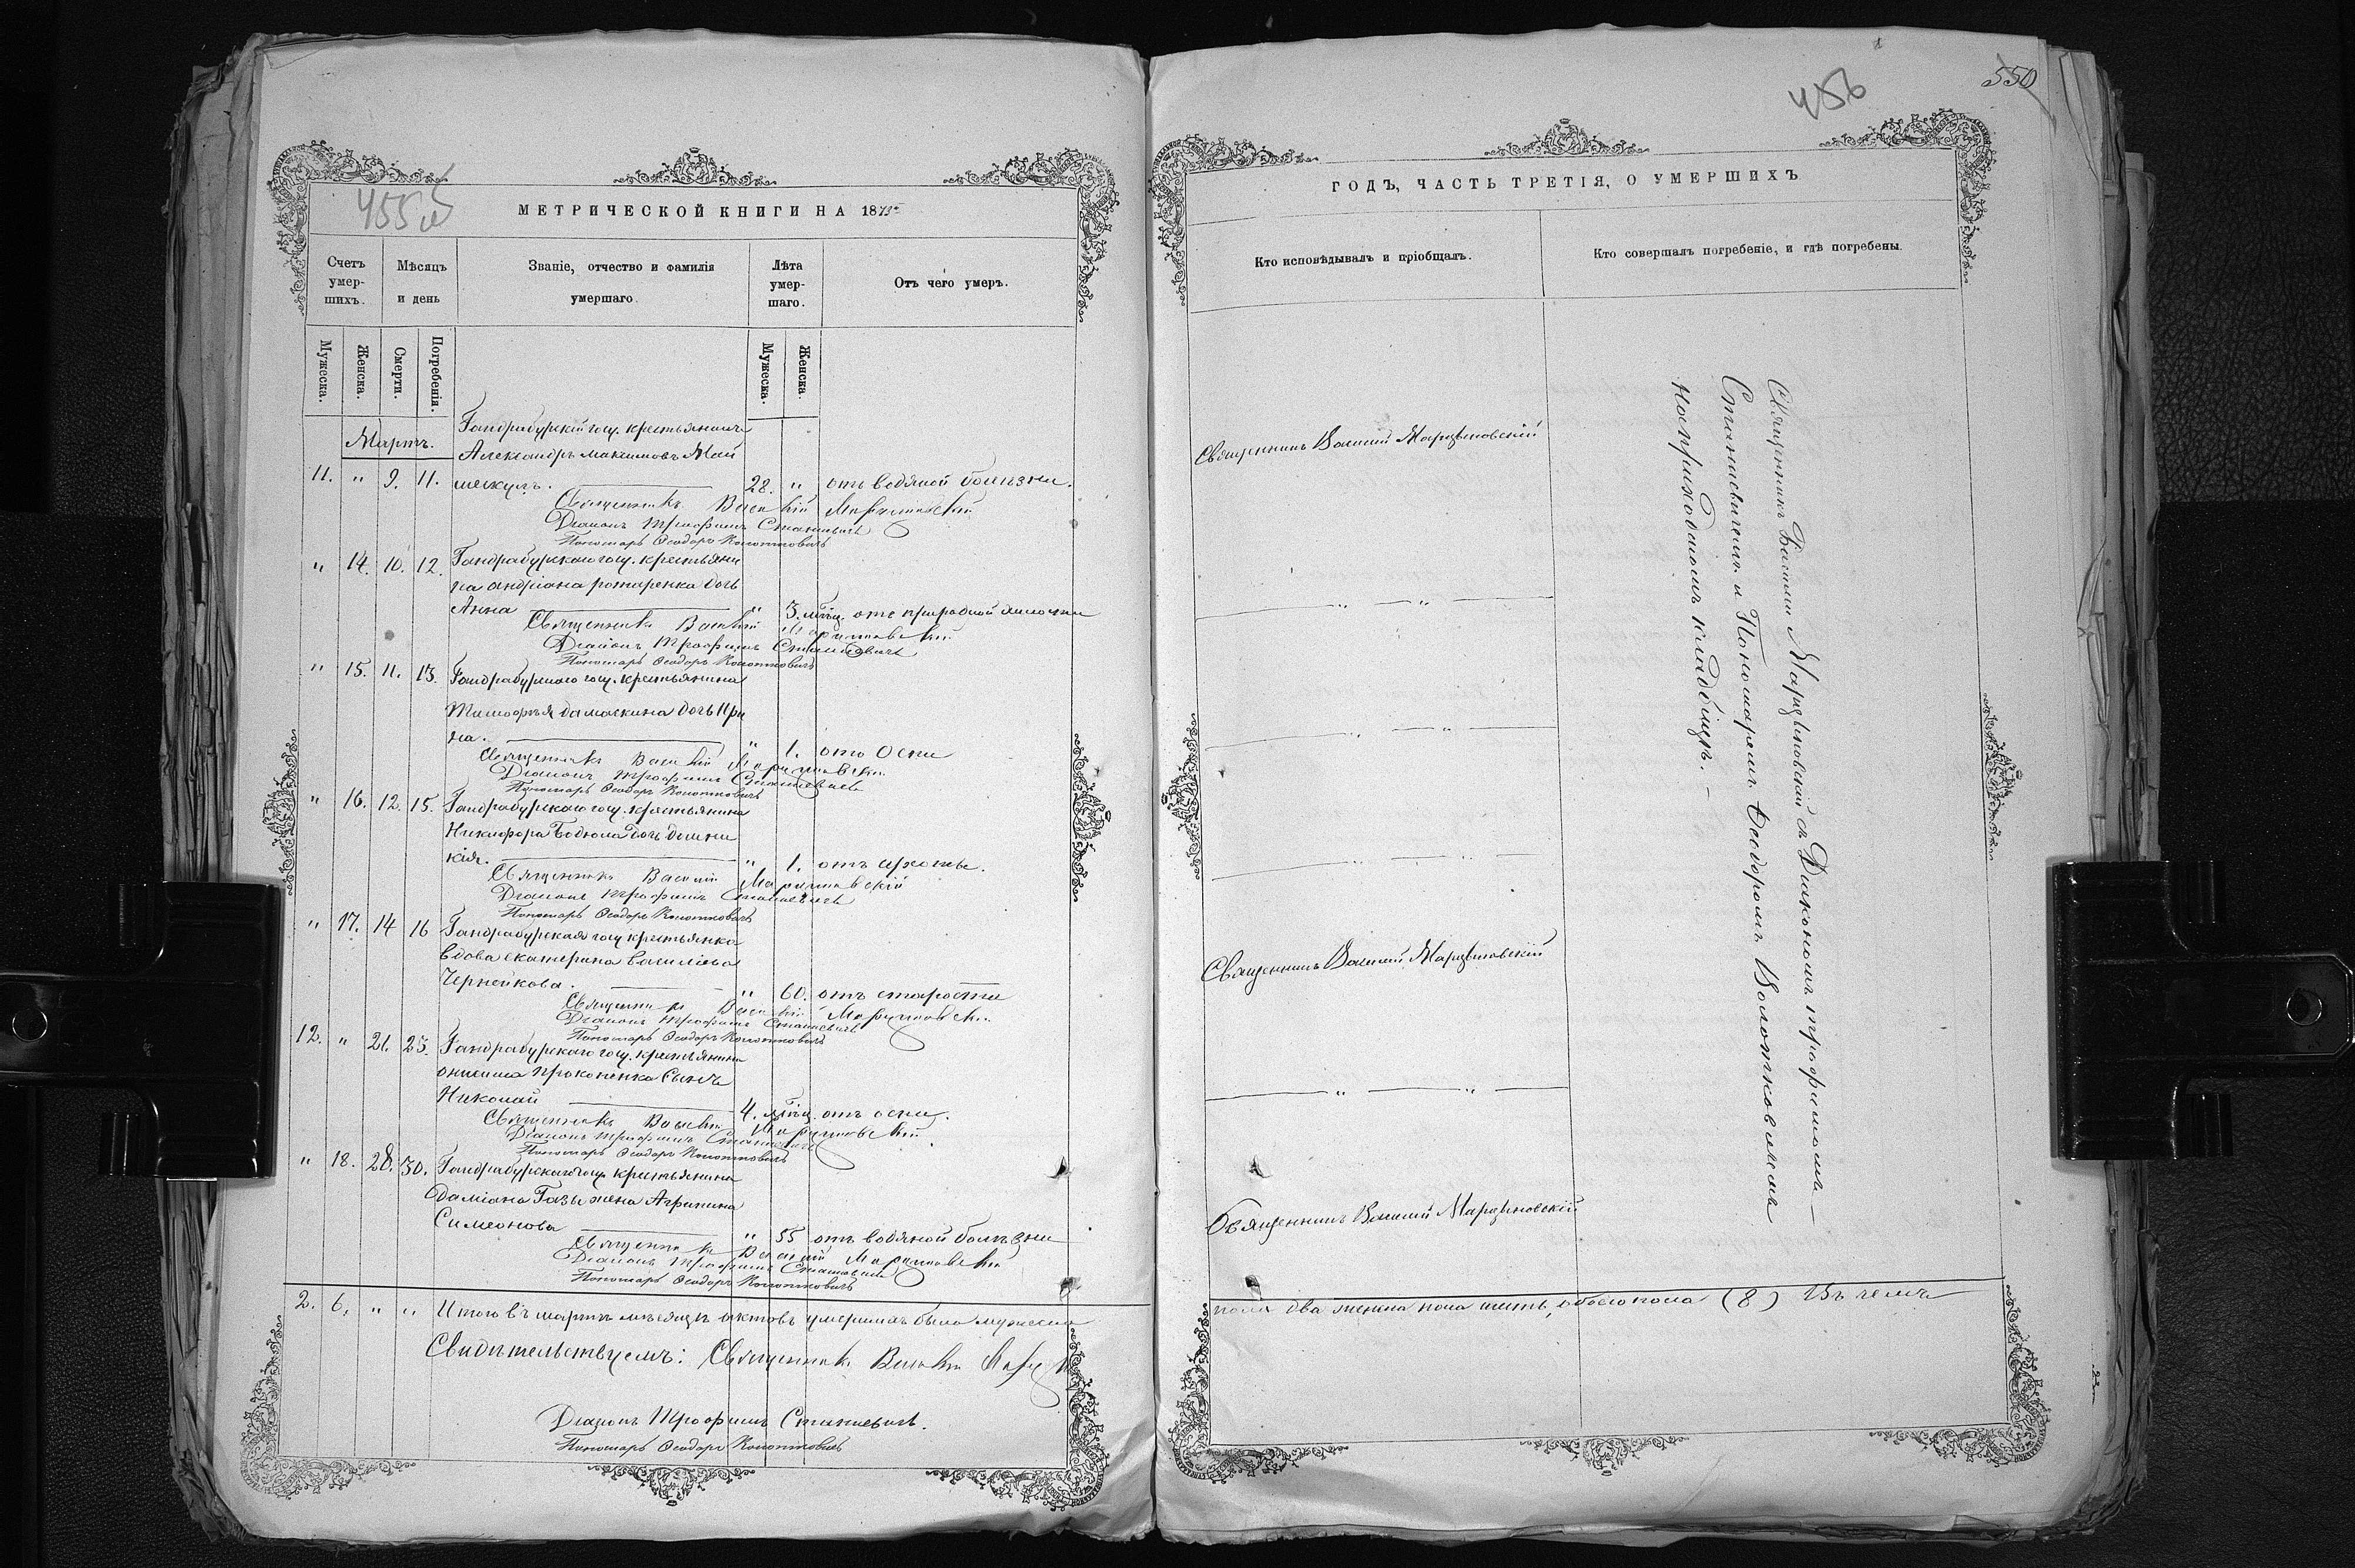 455 об
МЕТРИЧЕСКОЙ КНИГИ НА 1875
Счетъ умер-шихъ.
Мѣсяцъ и день
Званіе, отчество и фамилія умершаго.
Лѣта умер-шаго.
Отъ чего умеръ.
Мужеска.
Женска.
Смерти.
Погребенія.
Мужеска.
Женска.
Мартъ.
Гандрабурскій госу. крестьянинъ
Александръ Максимовъ Май
11. " 9. 11. мескулъ. 28. " отъ водяной болѣзни.
Священникъ Василій Марциновскій
Діаконъ Трофимъ Станиевичъ
Пономарь Ѳеодоръ Колотковичъ
" 14. 10. 12. Гандрабурскаго госу. крестьяни
на Андріана Ротаренка дочь
Анна " 3. мѣц. отъ природной
Священникъ Василій Марциновскій
Діаконъ Трофимъ Станиевичъ
Пономарь Ѳеодоръ Колотковичъ
" 15. 11. 13. Гандрабурскаго госу. крестьянина
Тимофѣя Дамаскина дочь Ири
на. " 1. отъ Оспи
Священникъ Василій Марциновскій
Діаконъ Трофимъ Станиевичъ
Пономарь Ѳеодоръ Колотковичъ
" 16. 12. 15. Гандрабурскаго госу. крестьянина
Никифора Бодюла дочь Домни
кія. " 1. отъ
Священникъ Василій Марциновскій
Діаконъ Трофимъ Станиевичъ
Пономарь Ѳеодоръ Колотковичъ
" 17. 14 16 Гандрабурская госу крестьянка
вдова Екатерина Василіева
Чернейкова. " 60. отъ старости
Священникъ Василій Марциновскій
Діаконъ Трофимъ Станиевичъ
Пономарь Ѳеодоръ Колотковичъ
12. " 21. 23. Гандрабурскаго госу. крестьянина
Онисима Прокопенка Сынъ
Николай 4. мѣц. отъ оспи.
Священникъ Василій Марциновскій
Діаконъ Трофимъ Станиевичъ
Пономарь Ѳеодоръ Колотковичъ
" 18. 28. 30. Гандрабурскаго госу. крестьянина
Даміана Газы жена Агрипина
Симеонова " 55 отъ водяной болѣзни
Священникъ Василій Марциновскій
Діаконъ Трофимъ Станиевичъ
Пономарь Ѳеодоръ Колотковичъ
2. 6. " " Итого въ мартѣ мѣсяцѣ актовъ умершихъ было мужеска
Свидѣтельствуемъ: Священникъ Василій
Діаконъ Трофимъ Станиевичъ.
Пономарь Ѳеодоръ Колотковичъ
456
550
ГОДЪ, ЧАСТЬ ТРЕТІЯ, О УМЕРШИХЪ
Кто исповѣдывалъ и пріобщалъ.
Кто совершалъ погребеніе, и гдѣ погребены.
Священникъ Василій Марциновскій
" "
" "
" "
Священникъ Василій Марциновскій
" "
Священникъ Василій Марциновскій
Священникъ Василій Марциновскій съ Діакономъ Трофимомъ
Станиевичемъ и Пономаремъ Ѳеодоромъ Колотковичемъ
на приходскомъ кладбищѣ.
пола два женска пола шесть, обоего пола (8) Въ чемъ